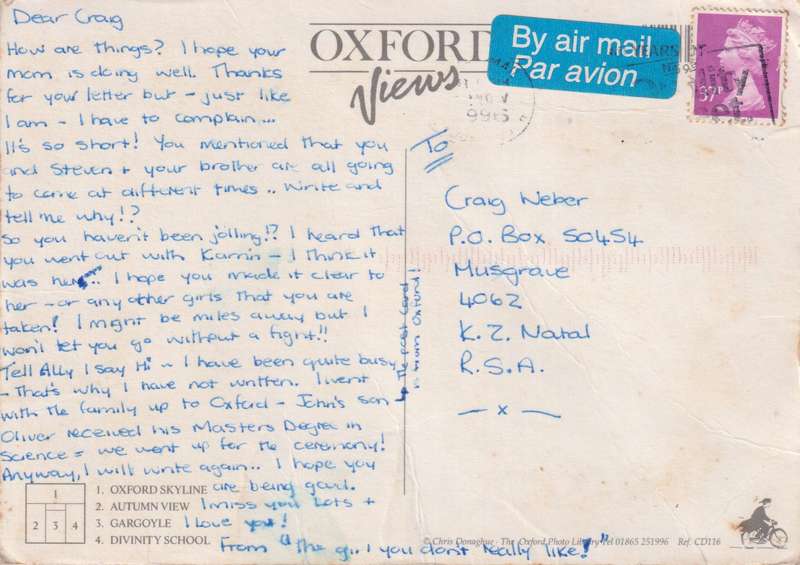 Dear Craig
How are things? I hope your
mom is doing well. Thanks
for your letter but - just like
I am - I have to complain...
It's so short! You mentioned that you
and Steven + your brother are all going
to come at different times .. Write and
tell me why!?
So you haven't been jolling!? I heard that
you went out with Karrin - I think it
was her.. I hope you made it clear to
her - or any other girls that you are
taken! I might be miles away but I
won't let you go without a fight!!
Tell Ally I say Hi ~ I have been quite busy
- That's why I have not written. I went
with the family up to Oxford - John's son -
Oliver received his Masters Degree in
Science = we went up for the ceremony!
Anyway, I will write again.. I hope you
are being good.
I miss you lots +
I love you!
From "The girl you don't really like!"
The post card
is from Oxford!
1
2 3 4
1. OXFORD SKYLINE
2. AUTUMN VIEW
3. GARGOYLE
4. DIVINITY SCHOOL
OXFORD
Views
By air mail
Par avion
39P
NOV
1996
YEARS OF
To
Craig Weber
P.O. Box 50454
Musgrave
4062
K.Z. Natal
R.S.A.
— x —
© Chris Donaghue - The Oxford Photo Library Tel 01865 251996 Ref. CD116